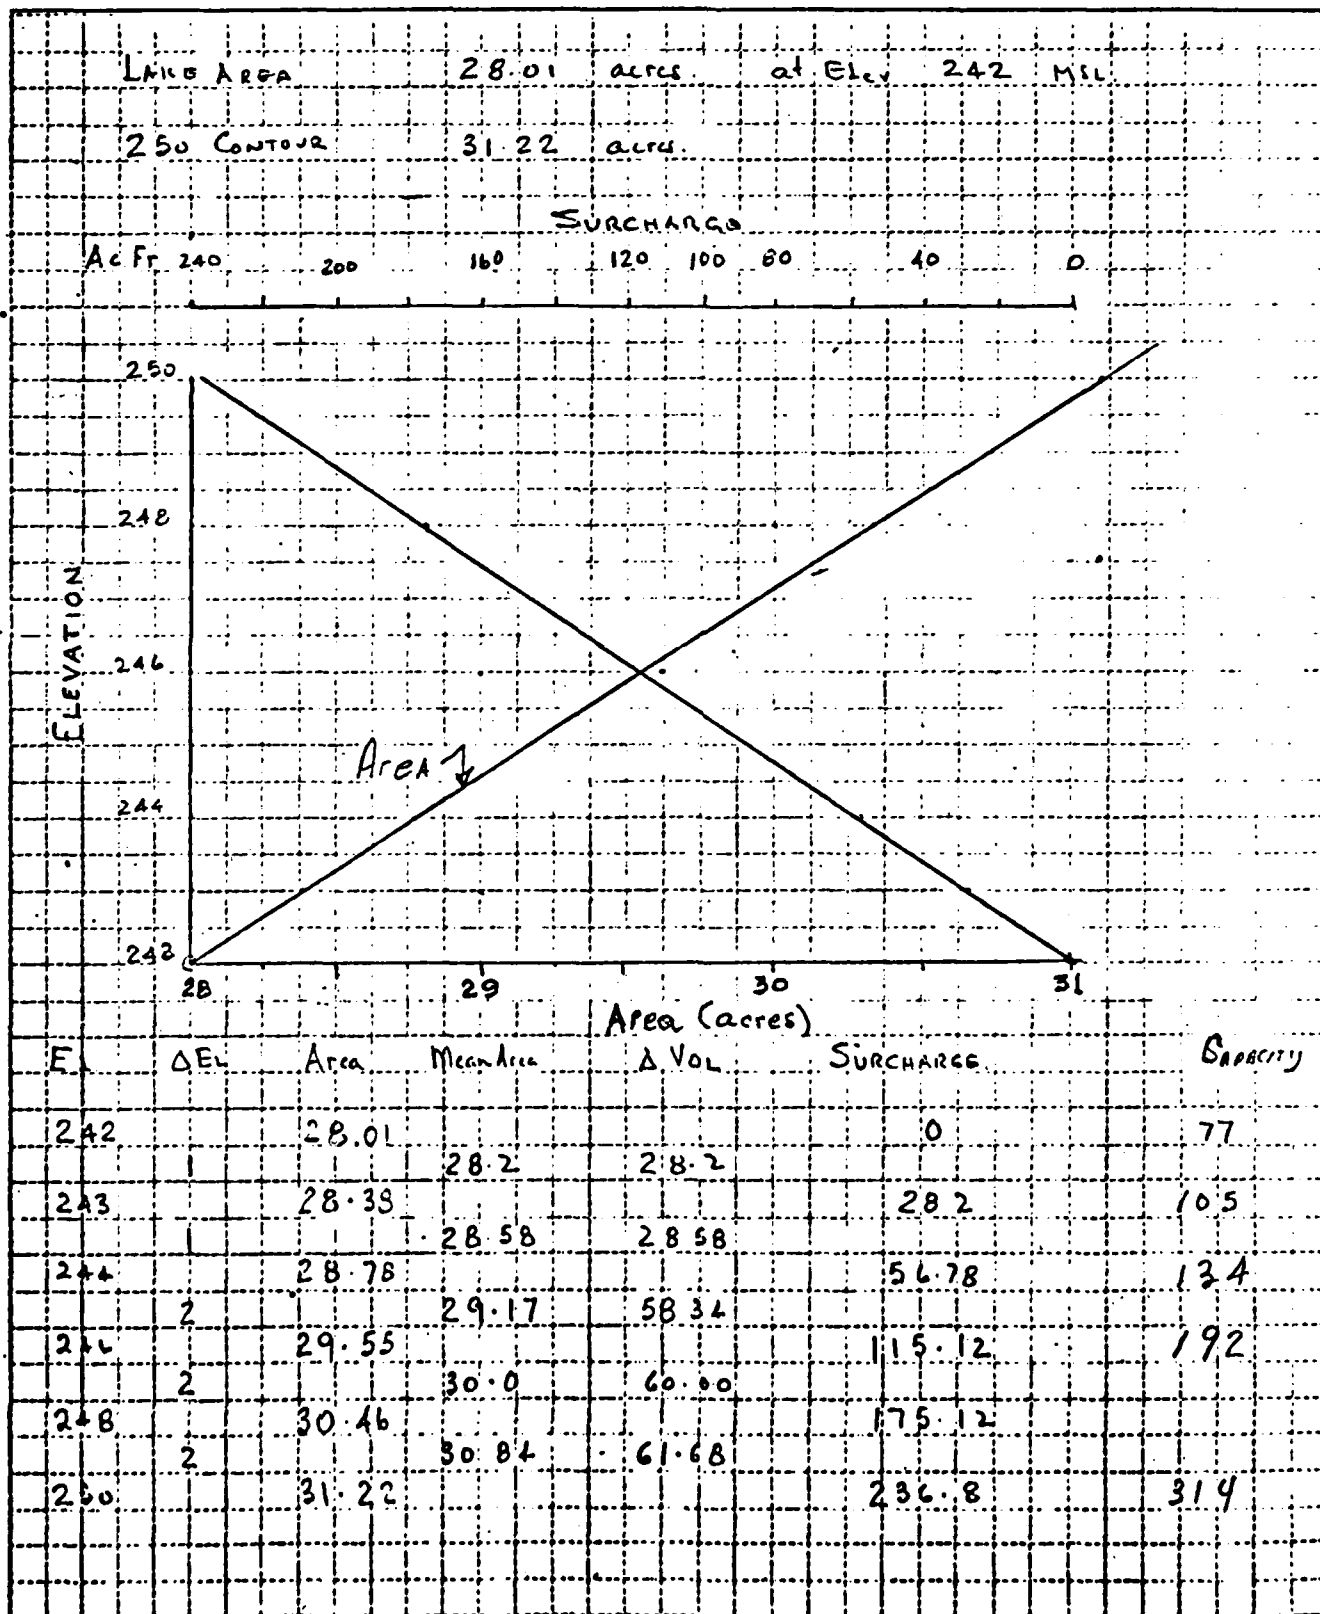 LAKE AREA 28.01 acres. at Elev 242 MSL
250 CONTOUR 31.22 acres.
SURCHARGE
Ac Ft 240 200 160 120 100 80 40 0
250
248
ELEVATION
246
Area
244
242
28 29 30 31
Area (acres)
EL Δ EL Area Mean Area Δ VOL SURCHARGE CAPACITY
242 28.01 0 77
1 28.2 28.2
243 28.39 28 2 105
1 28 58 28 58
244 28.78 56.78 134
2 29.17 58 34
246 29.55 115.12 192
2 30.0 60.00
248 30.46 175.12
2 30 84 61.68
250 31.22 236.8 314